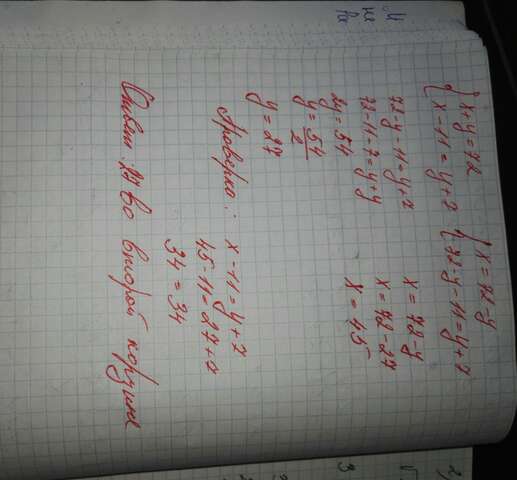 { x+y=72 { x=72-y
{ x-11=y+7 { 72-y-11=y+7
72-y-11=y+7 x=72-y
72-11-7=y+y x=72-27
2y=54 x=45
y=54/2
y=27
Проверка: x-11=y+7
45-11=27+7
34=34
Ответ: 27 во второй корзине